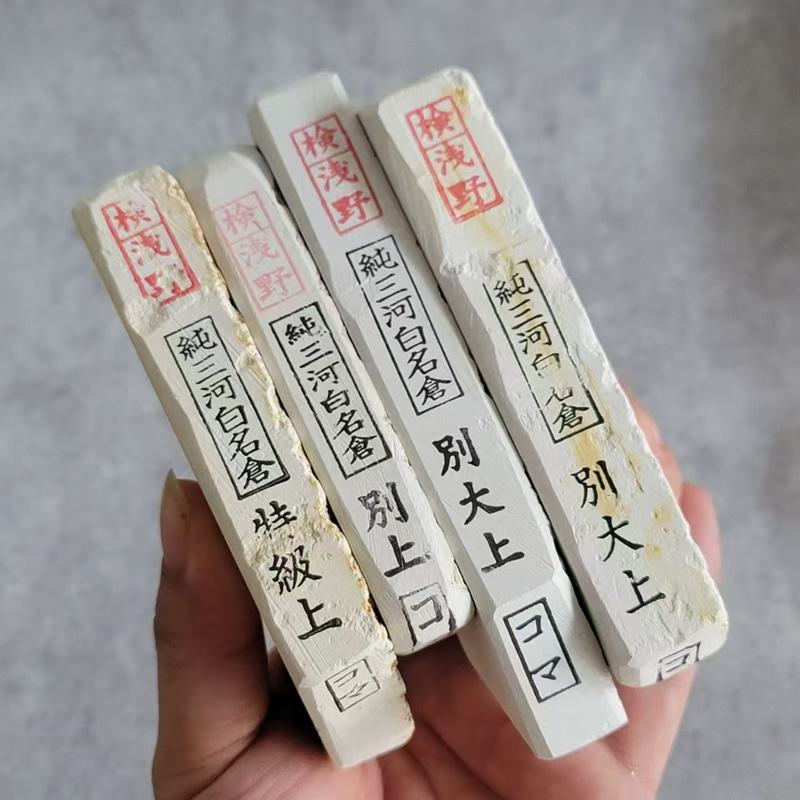 検浅野
純三河白名倉
特級上
コマ
検浅野
純三河白名倉
別上
コ
検浅野
純三河白名倉
別大上
コマ
検浅野
純三河白名倉
別大上
コ